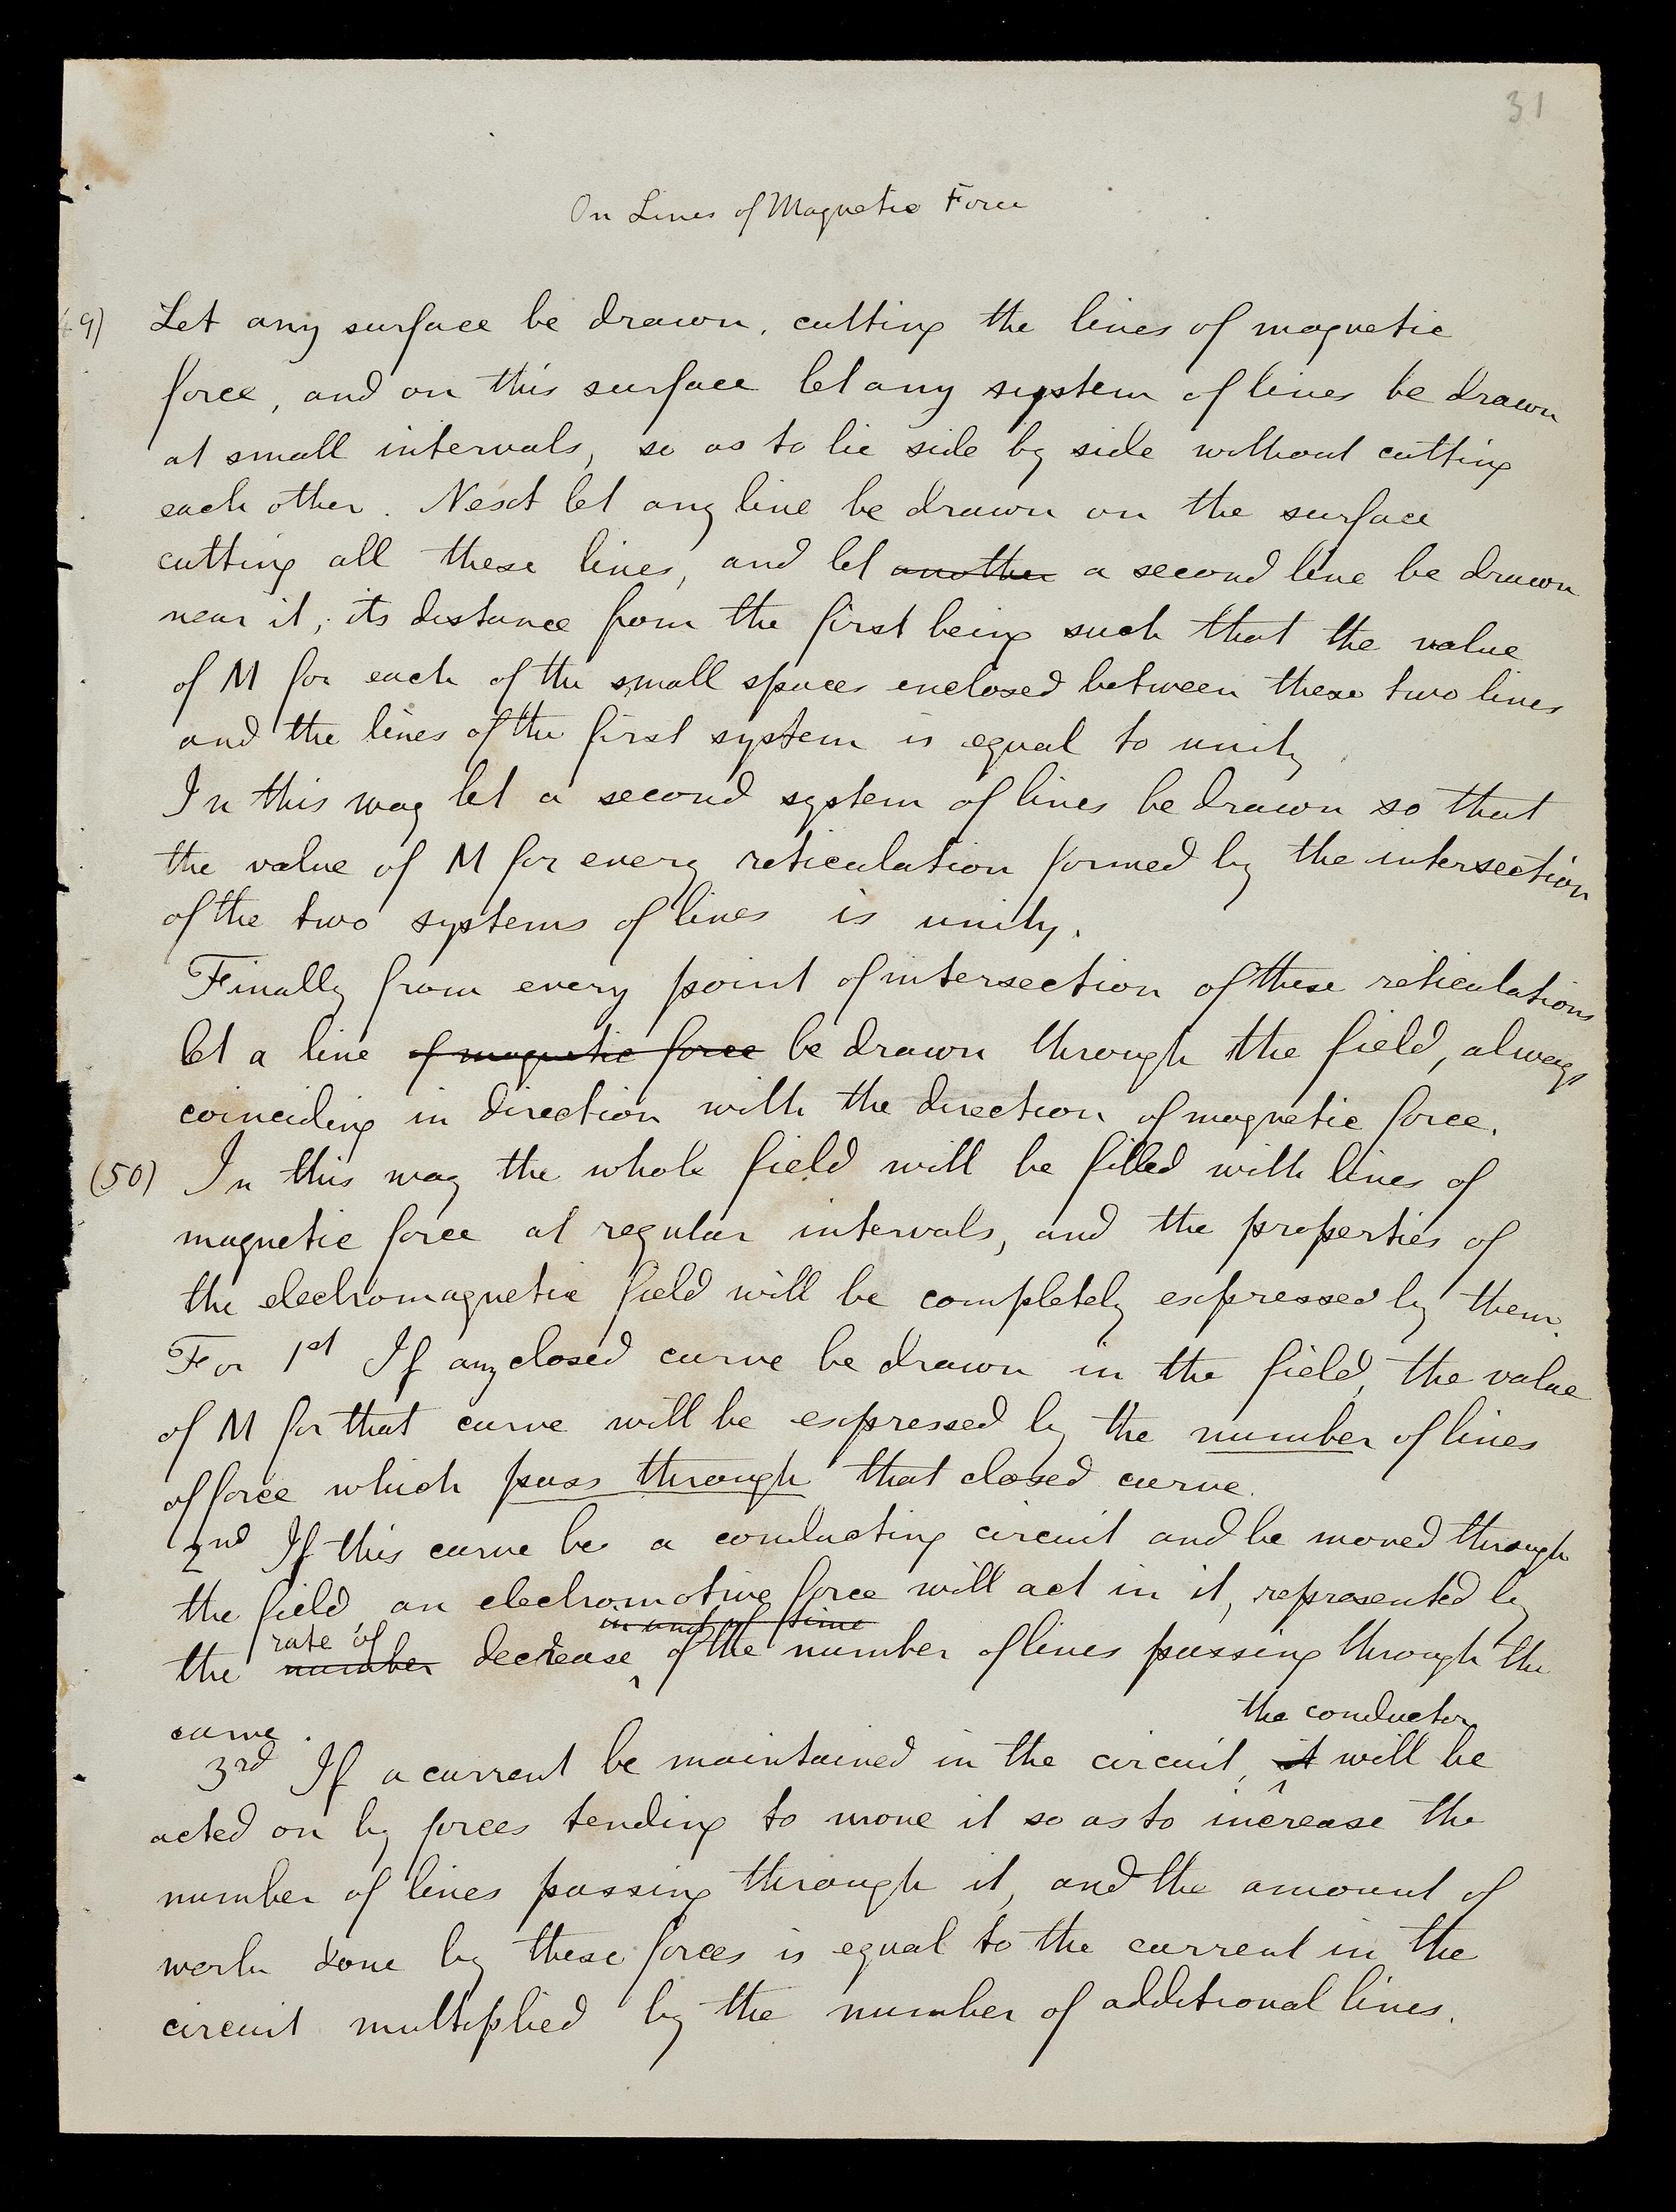 31
On Lines of Magnetic Force
49) Let any surface be drawn, cutting the lines of magnetic
force, and on this surface let any system of lines be drawn
at small intervals, so as to lie side by side without cutting
each other. Next let any line be drawn on the surface
cutting all these lines, and let another a second line be drawn
near it, its distance from the first being such that the value
of M for each of the small spaces enclosed between these two lines
and the lines of the first system is equal to unity
In this way let a second system of lines be drawn so that
the value of M for every reticulation formed by the intersection
of the two systems of lines is unity.
Finally from every point of intersection of these reticulations
let a line of magnetic force be drawn through the field, always
coinciding in direction with the direction of magnetic force.
(50) In this way the whole field will be filled with lines of
magnetic force at regular intervals, and the properties of
the electromagnetic field will be completely expressed by them.
For 1st If any closed curve be drawn in the field, the value
of M for that curve will be expressed by the number of lines
of force which pass through that closed curve.
2nd If this curve be a conducting circuit and be moved through
the field, an electromotive force will act in it, represented by
rate of in unit of time
the number decrease of the number of lines passing through the
curve.
the conductor
3rd If a current be maintained in the circuit, it will be
acted on by forces tending to move it so as to increase the
number of lines passing through it, and the amount of
work done by these forces is equal to the current in the
circuit multiplied by the number of additional lines.